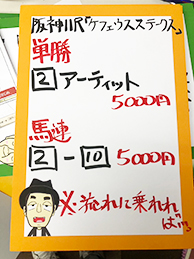 阪神11R「ケフェウスステークス」
単勝
2 アーティット
5000円
馬連
2-10 5000円
※流れに乗れれ
ば…